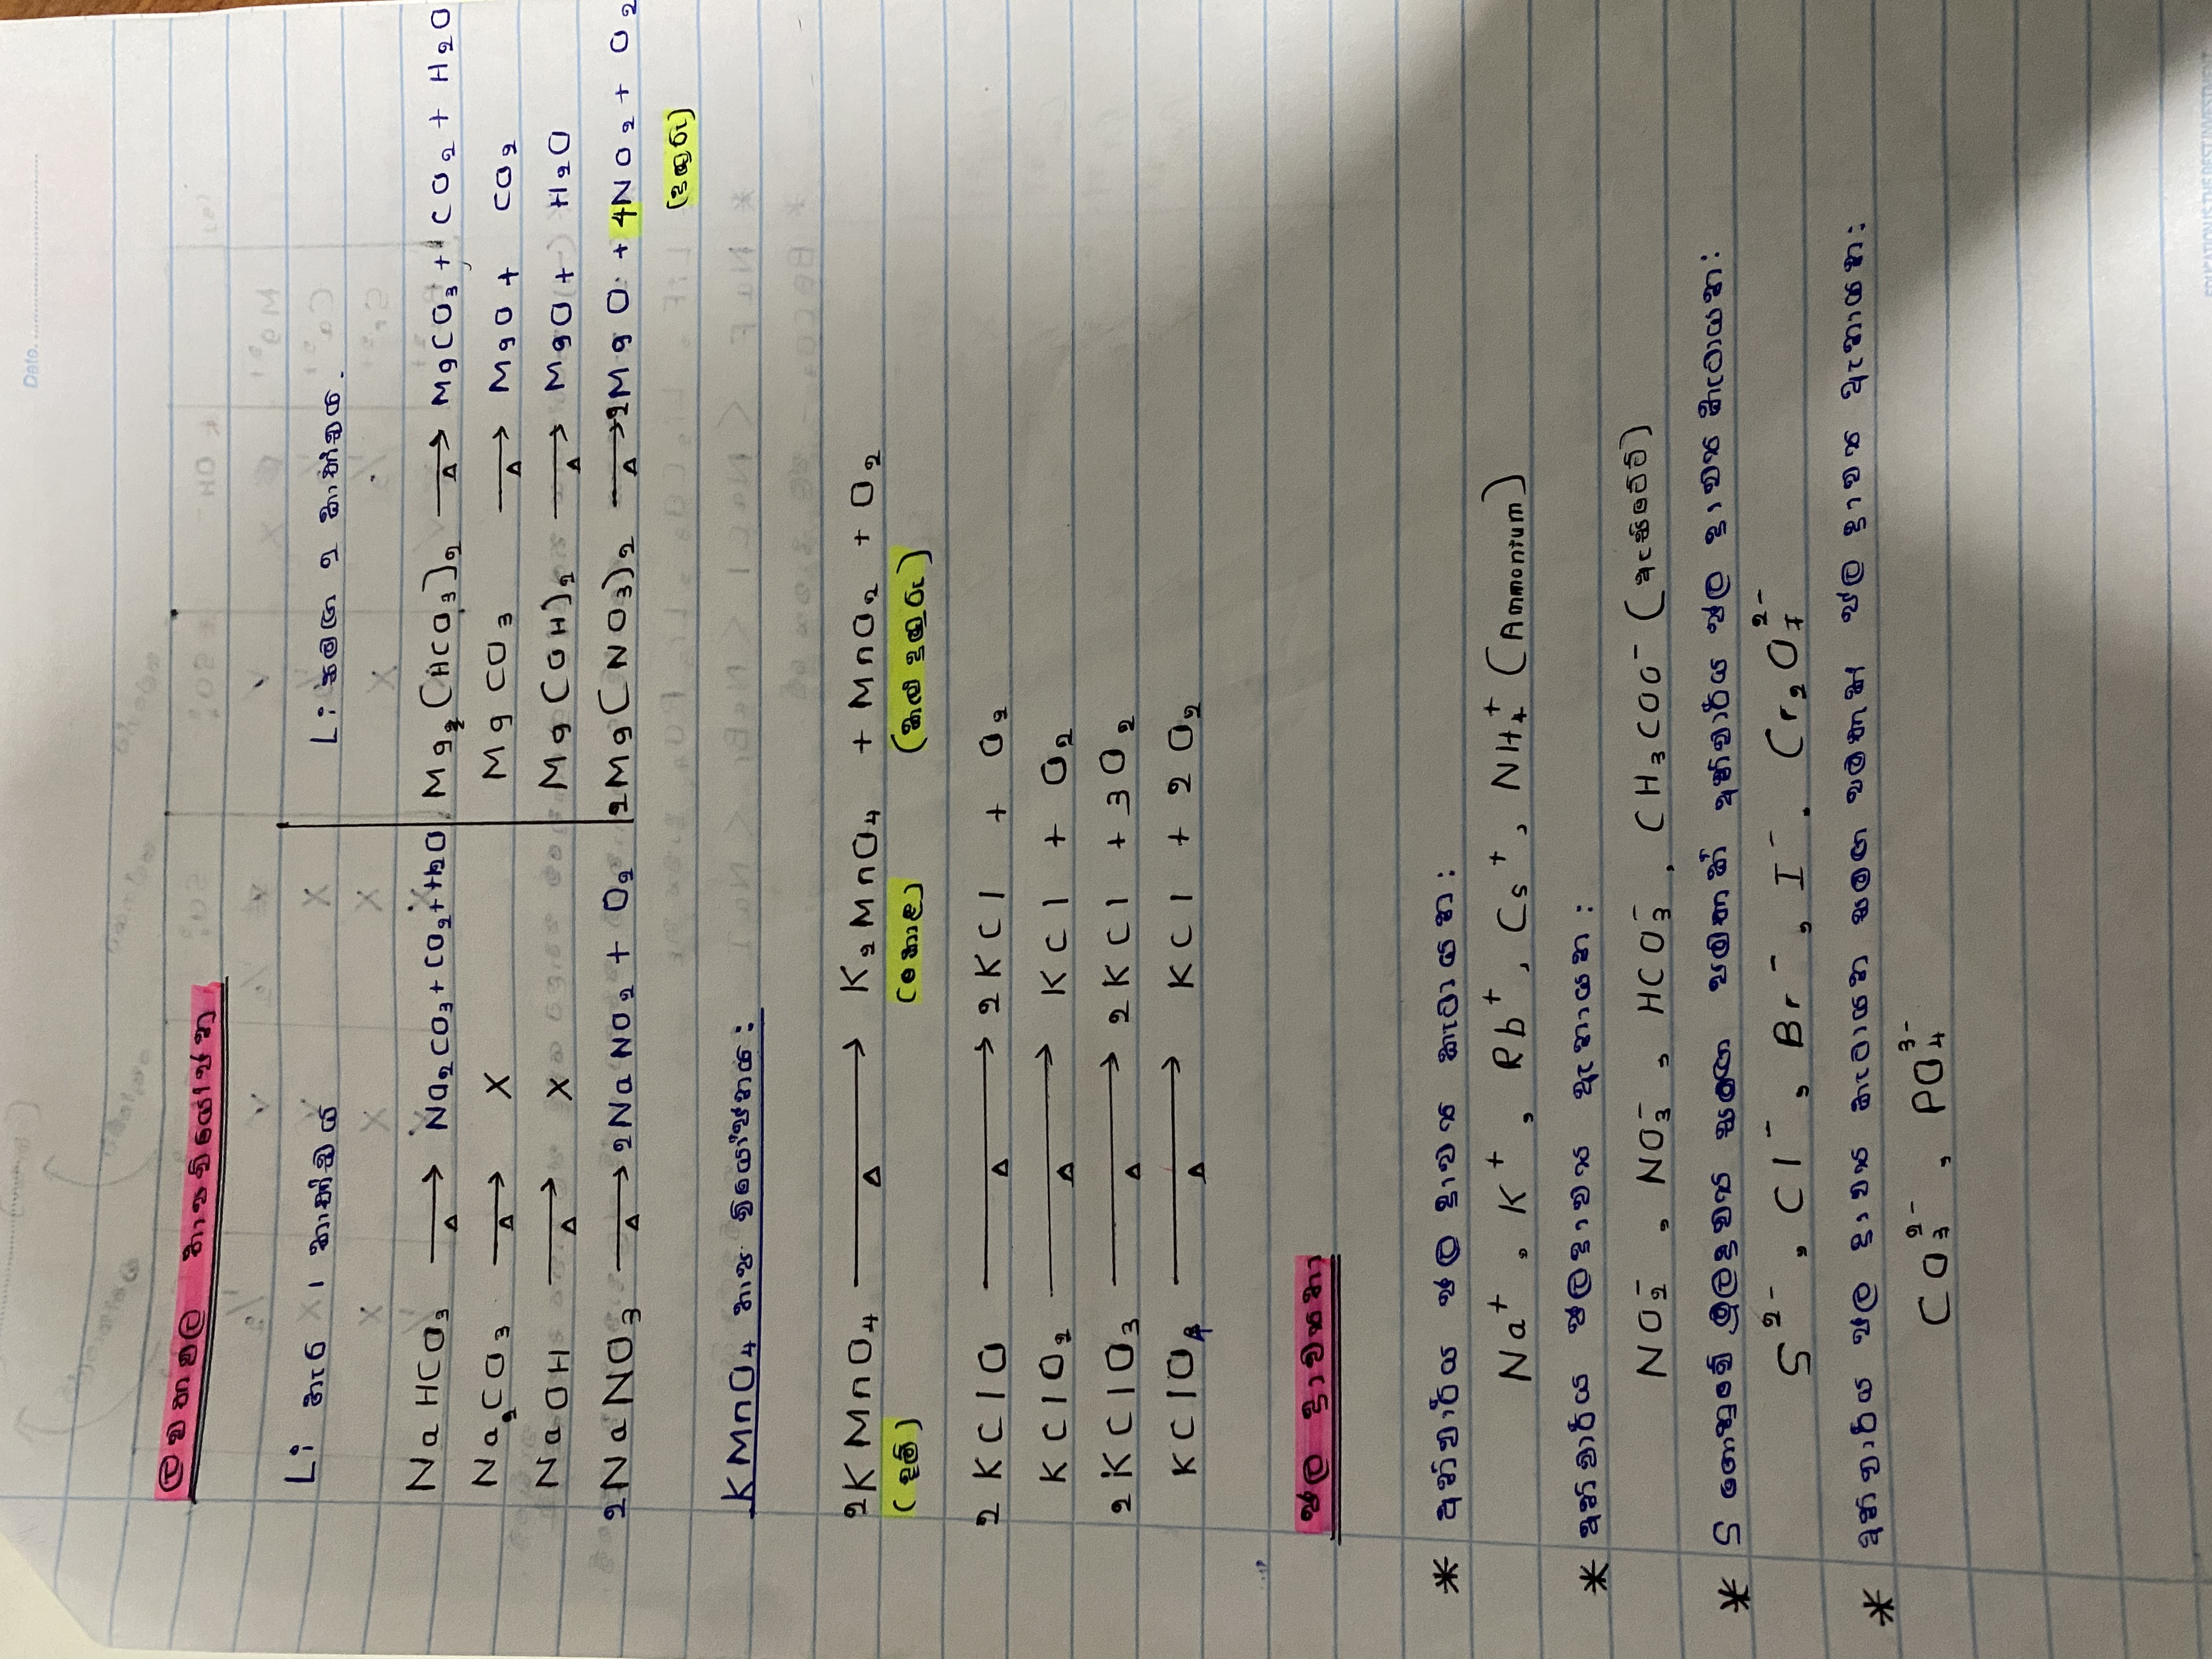 Date.
ලවනවල තාපවියෝජන
Li හැර 1 කාණ්ඩය
Li සහ 2 කාණ්ඩය.
NaHCO₃ →Δ Na₂CO₃ + CO₂ + H₂O
Mg(HCO₃)₂ →Δ MgCO₃ + CO₂ + H₂O
Na₂CO₃ →Δ X
MgCO₃ →Δ MgO + CO₂
NaOH →Δ X
Mg(OH)₂ →Δ MgO + H₂O
2NaNO₃ →Δ 2NaNO₂ + O₂
2Mg(NO₃)₂ →Δ 2MgO + 4NO₂ + O₂
(දුඹුරු)
KMnO₄ තාප වියෝජනය:
2KMnO₄ →Δ K₂MnO₄ + MnO₂ + O₂
(දම්) (කොළ) (කළු දුඹුරු)
2KClO →Δ 2KCl + O₂
KClO₂ →Δ KCl + O₂
2KClO₃ →Δ 2KCl + 3O₂
KClO₄ →Δ KCl + 2O₂
ජල ද්‍රාව්‍යතා
* අනිවාර්ය ජල ද්‍රාව්‍ය කැටායන:
Na⁺, K⁺, Rb⁺, Cs⁺, NH₄⁺ (Ammonium)
* අනිවාර්ය ජලද්‍රාව්‍ය ඇනායන:
NO₂⁻, NO₃⁻, HCO₃⁻, CH₃COO⁻ (ඇසිටේට්)
* S ගොනුවේ මූලද්‍රව්‍ය සමඟ පමණක් අනිවාර්ය ජල ද්‍රාව්‍ය කැටායන:
S²⁻, Cl⁻, Br⁻, I⁻, Cr₂O₇²⁻
* අනිවාර්ය ජල ද්‍රාව්‍ය කැටායන සමඟ පමණක් ජල ද්‍රාව්‍ය ඇනායන:
CO₃²⁻, PO₄³⁻